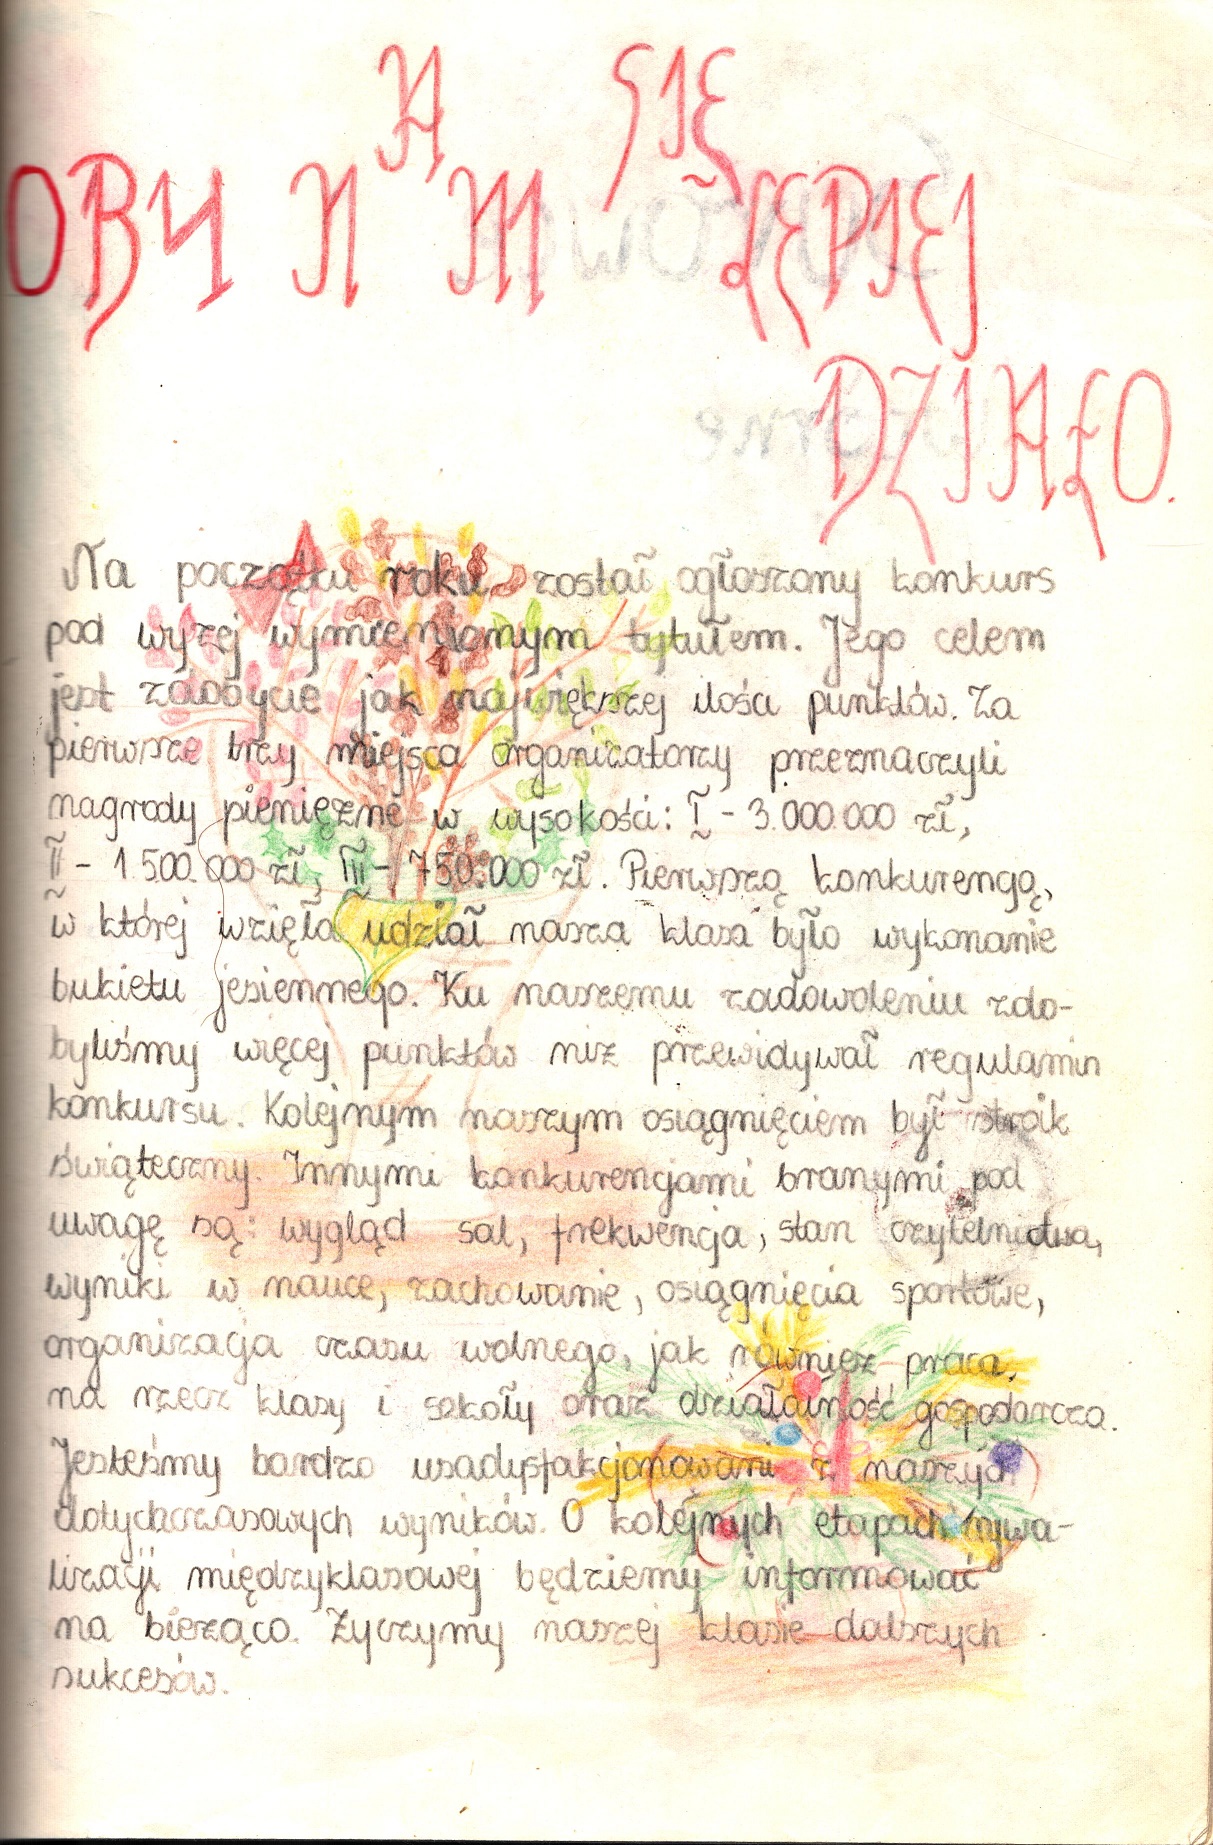 OBY NAM SIĘ LEPIEJ
DZIAŁO.
Na początku roku, został ogłoszony konkurs
pod wyżej wymienionym tytułem. Jego celem
jest zdobycie jak największej ilości punktów. Za
pierwsze trzy miejsca organizatorzy przeznaczyli
nagrody pieniężne w wysokości: I - 3.000.000 zł,
II - 1.500.000 zł, III - 750.000 zł. Pierwszą konkurengą,
w której wzięła udział nasza klasa było wykonanie
bukietu jesiennego. Ku naszemu zadowoleniu zdo-
byliśmy więcej punktów niż przewidywał regulamin
konkursu. Kolejnym naszym osiągnięciem był stroik
świąteczny. Innymi konkurencjami branymi pod
uwagę są: wygląd sal, frekwencja, stan czytelnictwa,
wyniki w nauce, zachowanie, osiągnięcia sportowe,
organizacja czasu wolnego, jak również praca,
na rzecz klasy i szkoły oraz działalność gospodarcza.
Jesteśmy bardzo usadysfakcjonowani z naszych
dotychczasowych wyników. O kolejnych etapach rywa-
lizacji międzyklasowej będziemy informować
na bieżąco. Życzymy naszej klasie dalszych
sukcesów.